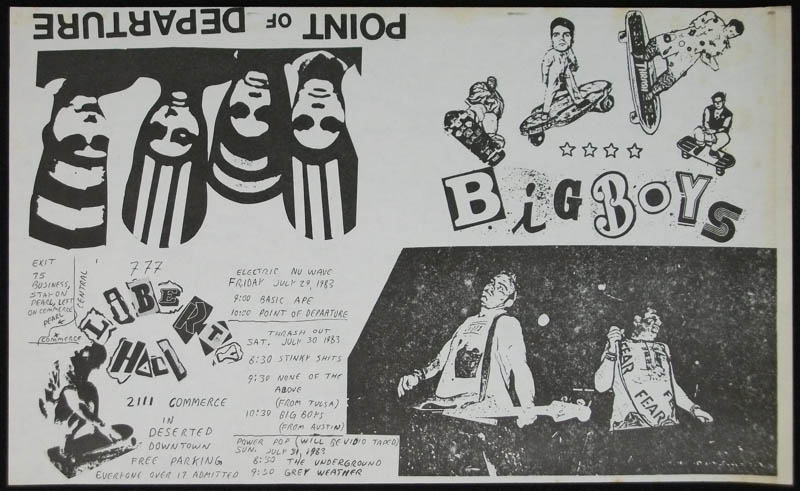 POINT OF DEPARTURE
BIG BOYS
FEAR
FEAR
EXIT
75
BUSINESS,
STAY ON
PEARL, LEFT
ON COMMERCE
PEARL
COMMERCE
CENTRAL
777
LIBERTY
HALL
2111 COMMERCE
IN
DESERTED
DOWNTOWN
FREE PARKING
EVERYONE OVER 17 ADMITTED
ELECTRIC NU WAVE
FRIDAY JULY 29, 1983
9:00 BASIC APE
10:00 POINT OF DEPARTURE
THRASH OUT
SAT. JULY 30 1983
8:30 STINKY SHITS
9:30 NONE OF THE
ABOVE
(FROM TULSA)
10:30 BIG BOYS
(FROM AUSTIN)
POWER POP (WILL BE VIDIO TAPED)
SUN. JULY 31, 1983
8:30 THE UNDERGROUND
9:30 GREY WEATHER